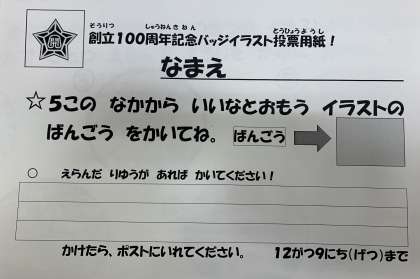 そうりつ しゅうねんきねん とうひょうようし
創立100周年記念バッジイラスト投票用紙!
なまえ
☆5この なかから いいなとおもう イラストの
ばんごう をかいてね。 ばんごう
○ えらんだ りゆうが あれば かいてください!
かけたら、ポストにいれてください。 12がつ9にち(げつ)まで